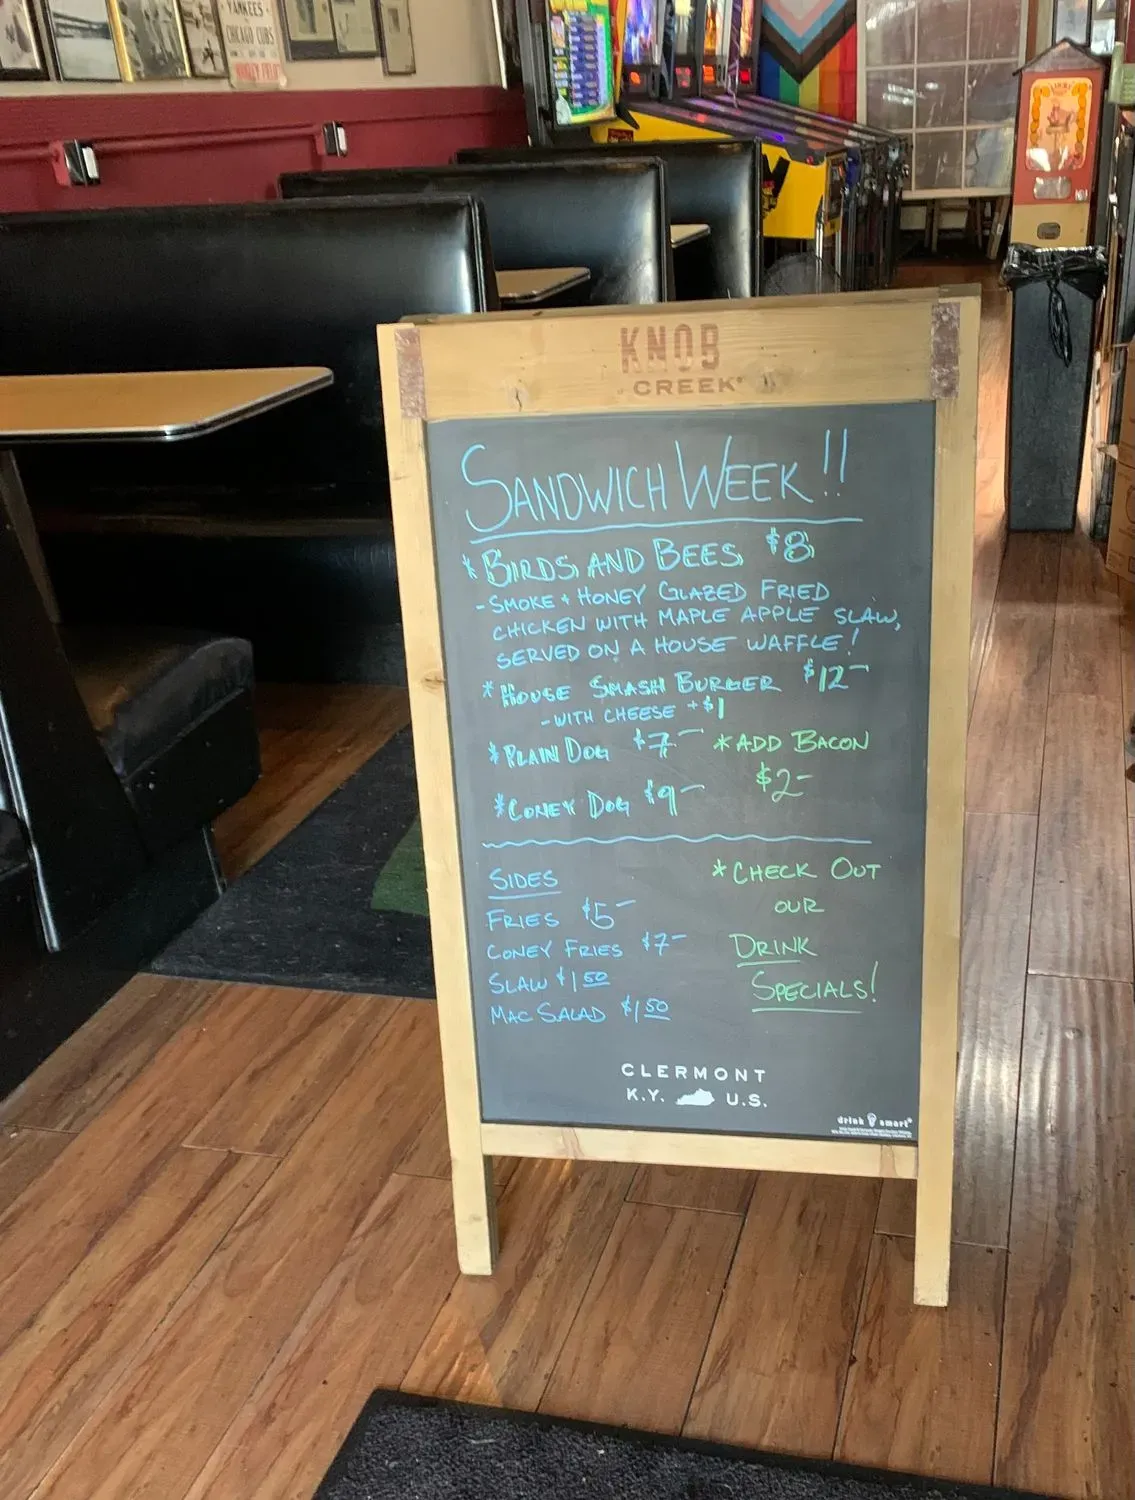 YANKEES
CHICAGO CUBS
WRIGLEY FIELD
KNOB
CREEK
SANDWICH WEEK!!
* BIRDS AND BEES $8
- SMOKE + HONEY GLAZED FRIED
CHICKEN WITH MAPLE APPLE SLAW,
SERVED ON A HOUSE WAFFLE!
* HOUSE SMASH BURGER $12-
- WITH CHEESE +$1
* PLAIN DOG $7-
* ADD BACON
$2-
* CONEY DOG $9-
SIDES
FRIES $5-
CONEY FRIES $7-
SLAW $1 50
MAC SALAD $1 50
* CHECK OUT
OUR
DRINK
SPECIALS!
CLERMONT
K.Y. U.S.
drink smart